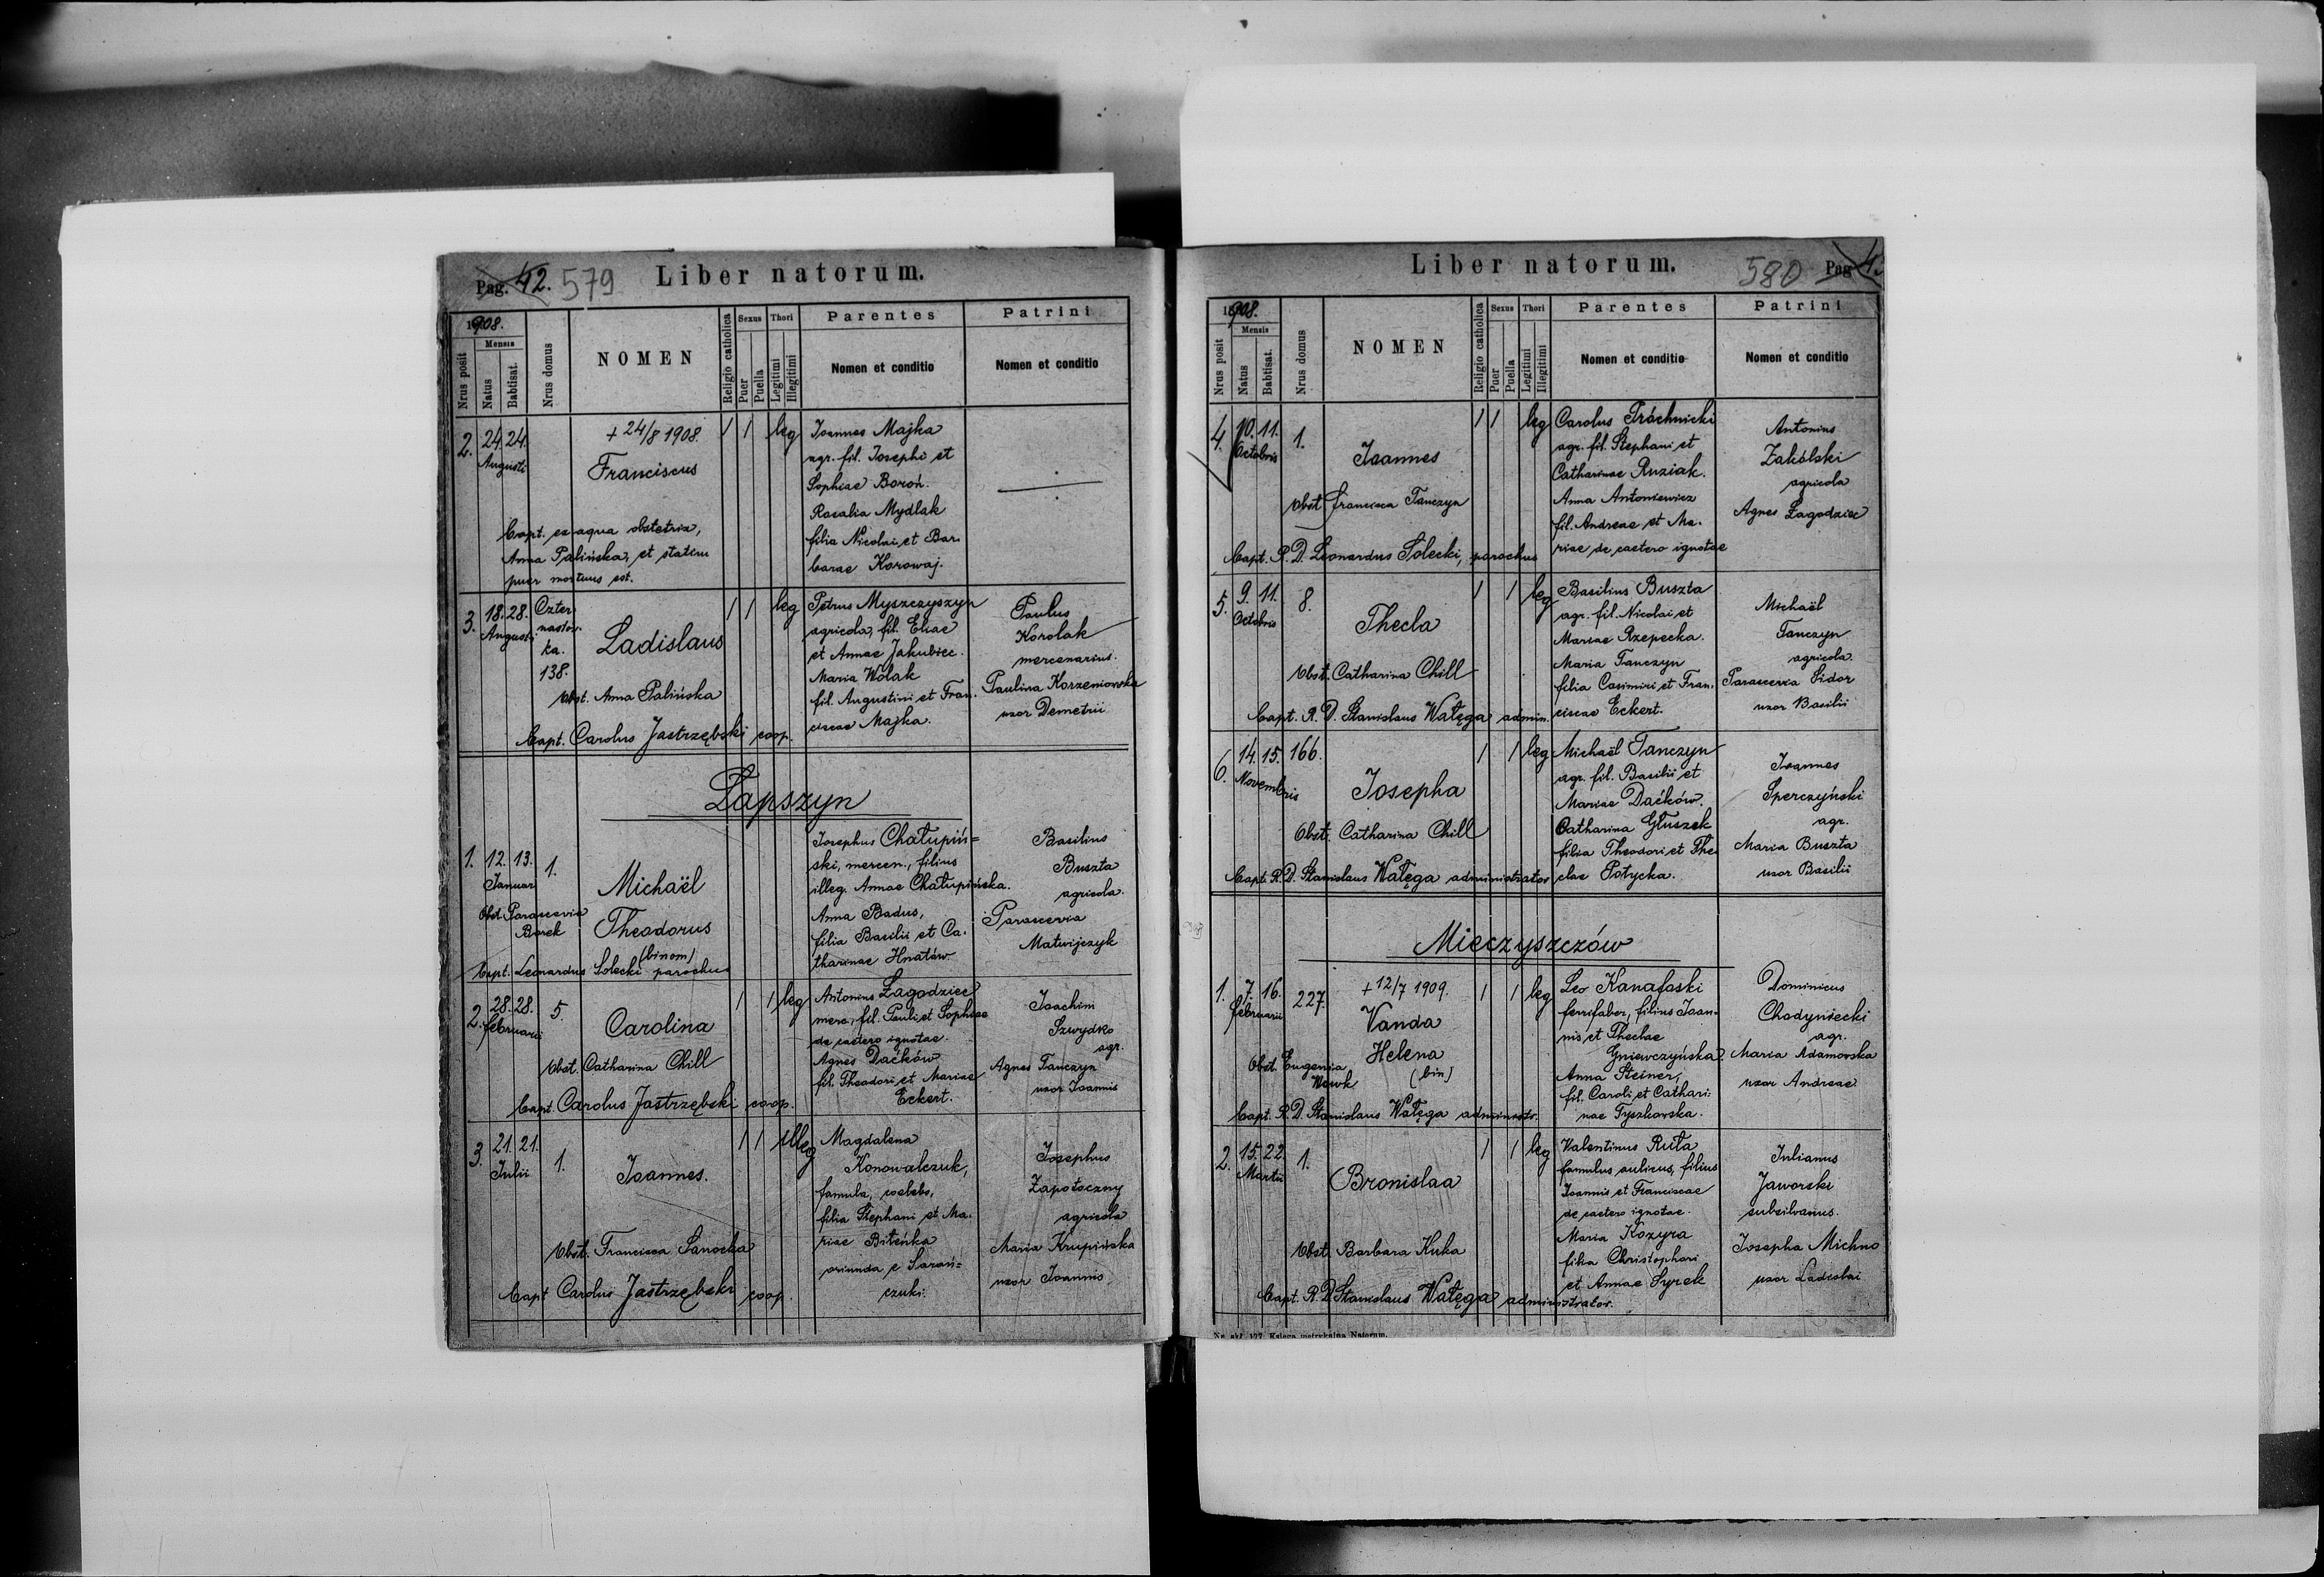 Pag. 42. 579 Liber natorum.
1908.
Nrus posit
Mensis
Natus
Babtisat.
Nrus domus
NOMEN
Religio catholica
Sexus
Puer
Puella
Thori
Legitimi
Illegitimi
Parentes
Nomen et conditio
Patrini
Nomen et conditio
2. 24. 24.
Augusti
+ 24/8 1908.
Franciscus
1 1 leg
Joannes Majka
agr. fil. Josephi et
Sophiae Boroń.
Rosalia Mydlak
filia Nicolai et Bar-
barae Korowaj.
bapt. ex aqua obstetrix,
Anna Palińska, et statim
puer mortuus est.
3. 18. 28.
Augusti
Czter
nastow-
ka.
138.
Ladislaus
1 1 leg
Petrus Myszczyszyn
agricola, fil. Eliae
et Annae Jakubiec.
Maria Wolak
fil. Augustini et Fran-
ciscae Majka.
Paulus
Korolak
mercenarius.
Paulina Korzeniowska
uxor Demetrii
Obst. Anna Palińska
Bapt. Carolus Jastrzębski coop.
Łapszyn
1. 12. 13.
Januar
1.
Michaël
Theodorus
(binom)
Josephus Chałupiń=
ski, mercen., filius
illeg. Annae Chałupińska.
Anna Badus,
filia Basilii et Ca-
tharinae Hnatów
Basilius
Buszta
agricola.
Parascevia
Matwijczyk
Obst. Parascevia
Borek
Bapt. Leonardus Solecki parochus
2. 28. 28.
februarii
5.
Carolina
1 1 leg
Antonius Zagodziec
merc., fil. Pauli et Sophiae
de caetero ignotae.
Agnes Daćków
fil. Theodori et Mariae
Eckert.
Joachim
Szwydko
agr.
Agnes Tanczyn
uxor Joannis
Obst. Catharina Chill
Bapt. Carolus Jastrzębski coop.
3. 21. 21.
Julii
1.
Joannes.
1 1 illeg
Magdalena
Konowalczuk,
famula, coelebs,
filia Stephani et Ma-
riae Biteńka
oriunda e Sarań=
czuki.
Josephus
Zapotoczny
agricola
Maria Krupińska
uxor Joannis
Obst. Francisca Sanocka
Bapt Carolus Jastrzębski coop.
Liber natorum. 580 Pag
1908.
Nrus posit
Mensis
Natus
Babtisat.
Nrus domus
NOMEN
Religio catholica
Sexus
Puer
Puella
Thori
Legitimi
Illegitimi
Parentes
Nomen et conditio
Patrini
Nomen et conditio
4. 10. 11.
Octobris
1.
Joannes
1 1 leg
Carolus Tráchnicki
agr. fil. Stephani et
Catharinae Ruziak.
Anna Antoniewicz
fil. Andreae et Ma-
riae de caetero ignotae
Antonius
Zakólski
agricola
Agnes Zagodziec
Obst francisca Tanczyn
Bapt. R. D. Leonardus Solecki, parochus
5. 9. 11.
Octobris
8.
Thecla
1 1 leg
Basilius Buszta
agr. fil. Nicolai et
Mariae Rzepecka.
Maria Tanczyn
filia Casimiri et Fran-
ciscae Eckert.
Michaël
Tanczyn
agricola.
Parascevia Sidor
uxor Basilii
Obst. Catharina Chill
Bapt. R. D. Stanislaus Watęga admin.
6. 14. 15.
Novembris
166.
Josepha
1 1 leg
Michaël Tanczyn
agr. fil. Basilii et
Mariae Daćków.
Catharina Głuszek
filia Theodori et The-
clae Potycka.
Joannes
Sperczyński
agr.
Maria Buszta
uxor Basilii
Obst. Catharina Chill
Bapt. R. D. Stanislaus Watęga administrator
Mieczyszczów
1. 7. 16.
februarii
227.
+ 12/7 1909.
Vanda
Helena
(bin)
1 1 leg
Leo Kanafaski
ferrifaber, filius Joan-
nis et Theclae
Gniewczyńska.
Anna Steiner,
fil. Caroli et Cathari:
nae Tyszkowska.
Dominicus
Chodyniecki
agr.
Maria Adamowska
uxor Andreae
Obst. Eugenia
Wowk
Bapt. R. D. Stanislaus Watęga administr.
2. 15. 22.
Martii
1.
Bronislaa
1 1 leg
Valentinus Ruta
famulus aulicus, filius
Joannis et Franciscae
de caetero ignotae.
Maria Kozyra
filia Christophori
et Annae Syrek
Julianus
Jaworski
subsilvanus.
Josepha Michno
uxor Ladislai
Obst. Barbara Kuka
Bapt. R. D. Stanislaus Watęga administrator.
Nr. skł. 177. Księga metrykalna Natorum.